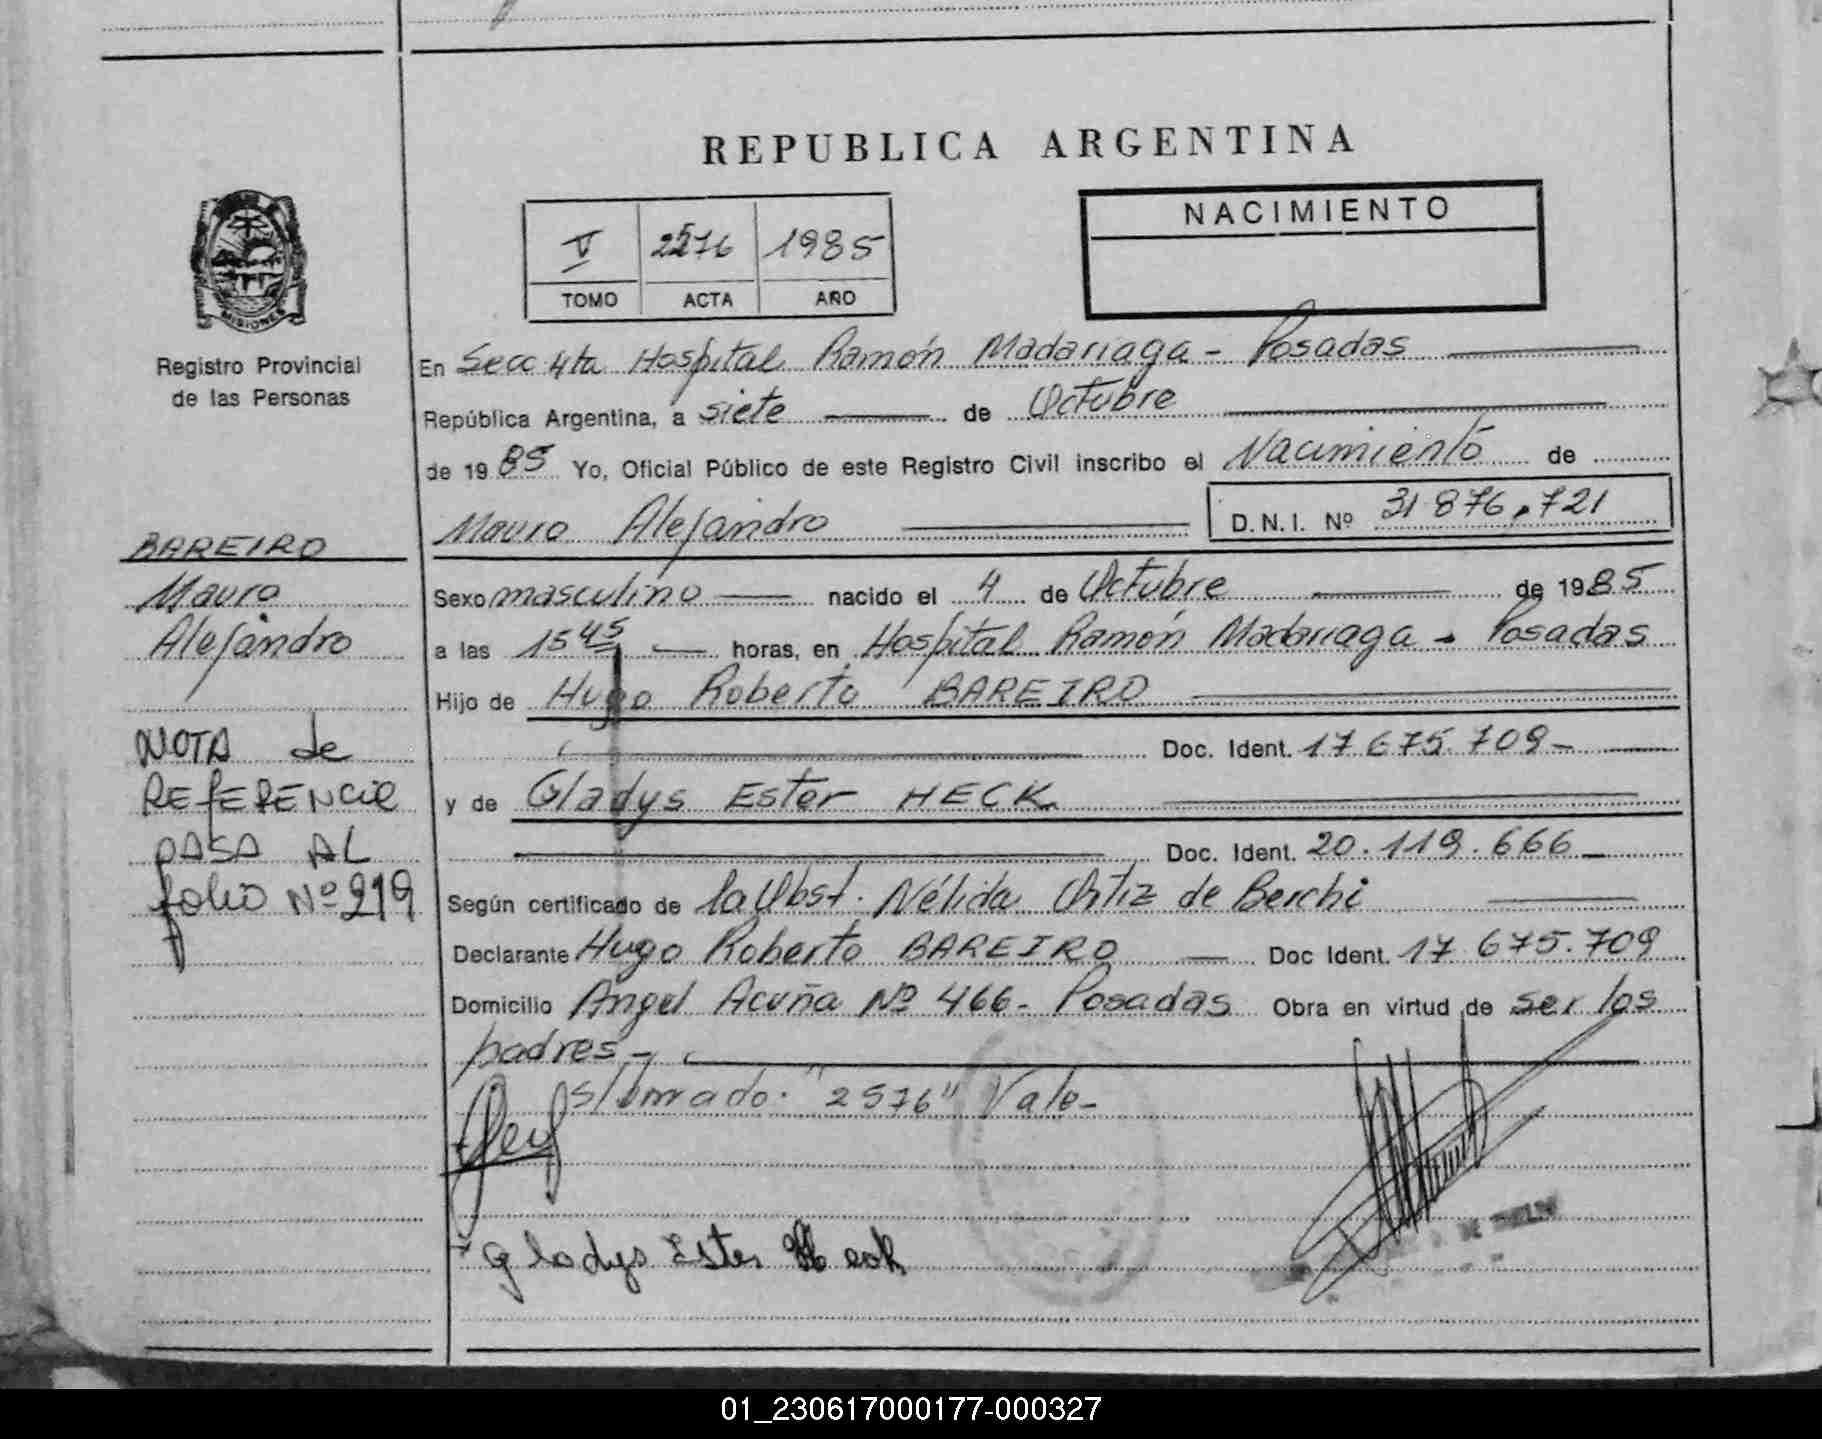 REPUBLICA ARGENTINA
V 2576 1985
TOMO ACTA AÑO
NACIMIENTO
MISIONES
Registro Provincial
de las Personas
En Secc 4ta Hospital Ramón Madariaga - Posadas
República Argentina, a siete de Octubre
de 1985 Yo, Oficial Público de este Registro Civil inscribo el Nacimiento de
Mauro Alejandro D.N.I. Nº 31.876.721
BAREIRO
Mauro
Alejandro
Sexo masculino nacido el 4 de Octubre de 1985
a las 15 45 horas, en Hospital Ramón Madariaga - Posadas
Hijo de Hugo Roberto BAREIRO
Doc. Ident. 17.675.709-
y de Gladys Ester HECK
Doc. Ident. 20.119.666
NOTA de
REfERENCia
PASA AL
folio Nº 219
Según certificado de la Obst. Nélida Ortiz de Berchi
Declarante Hugo Roberto BAREIRO Doc Ident. 17 675.709
Domicilio Angel Acuña Nº 466- Posadas Obra en virtud de ser los
padres-
s/borrado: "2576" Vale-
Gladys Ester Heck
01_230617000177-000327